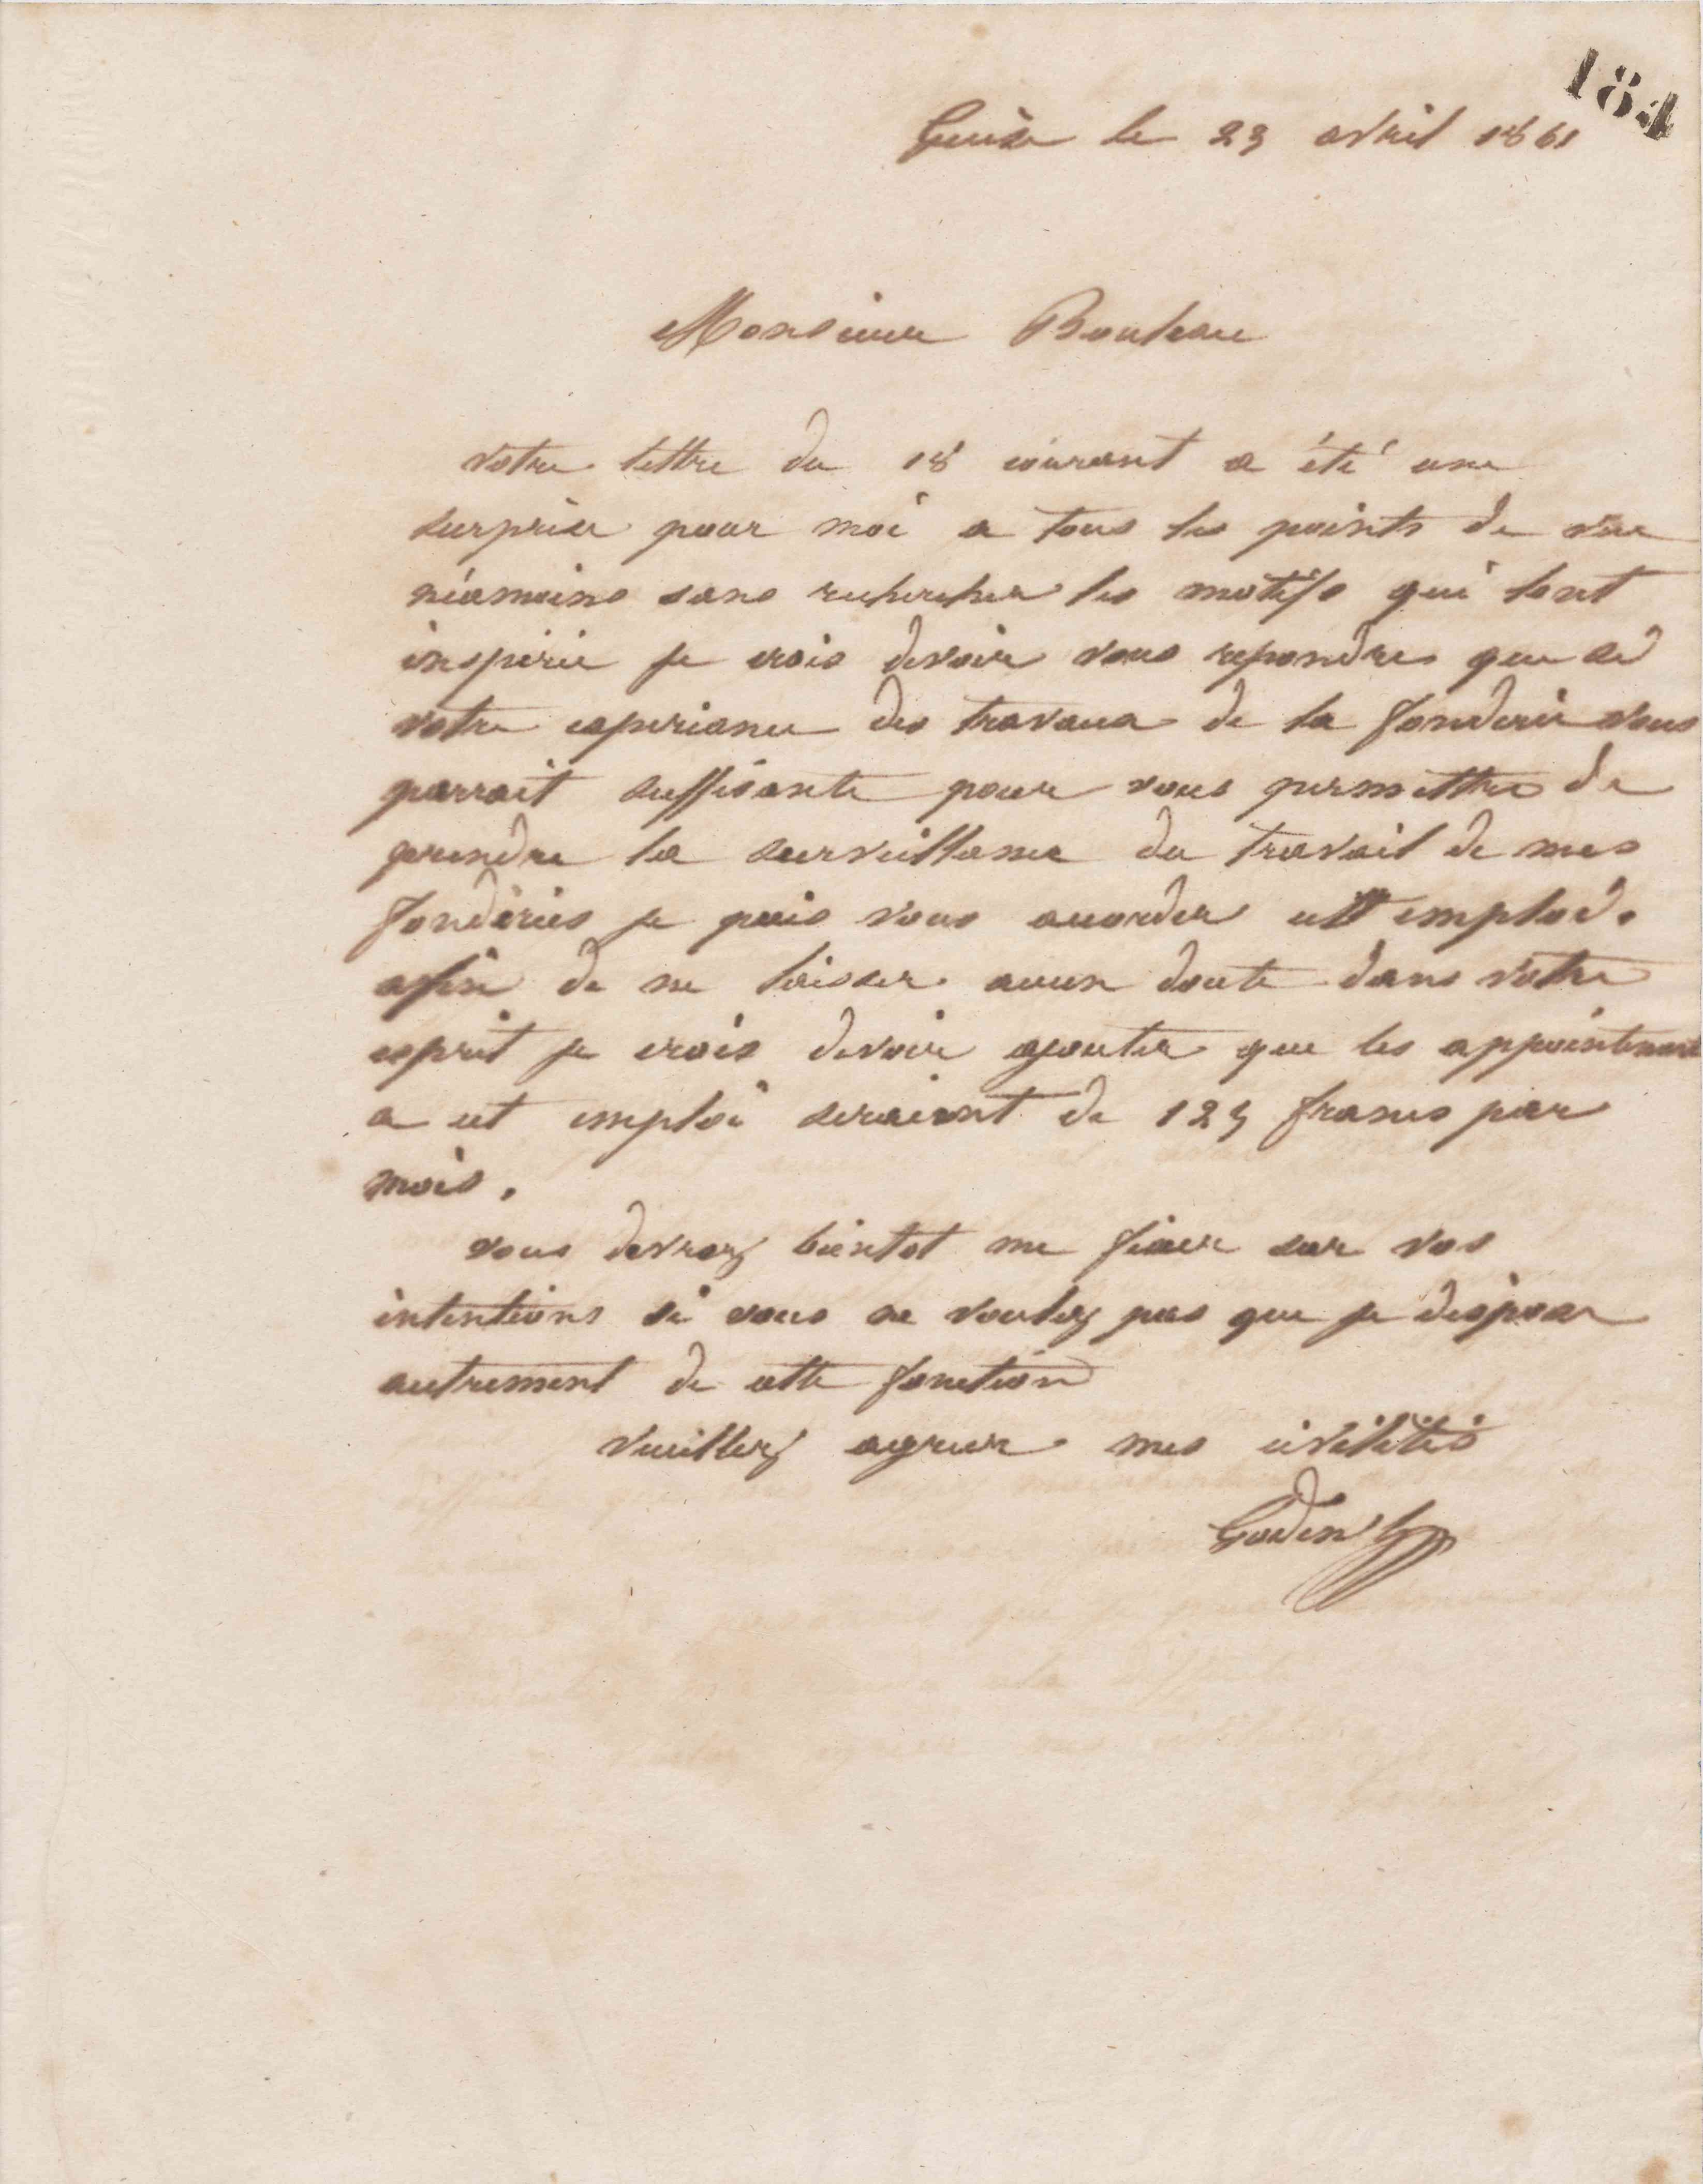 184
Guise le 23 avril 1861
Monsieur Bouleau
votre lettre du 18 courant a été une
surprise pour moi a tous les points de vue
néamoins sans rechercher les motifs qui lont
inspirée je crois devoir vous repondre que si
votre experiance des travaux de la fonderie vous
parrait suffisante pour vous permettre de
prendre la surveillance du travail de mes
fonderies je puis vous accorder cet emploi.
afin de ne laisser aucun doute dans votre
esprit je crois devoir ajouter que les appointements
a cet emploi seraient de 125 francs par
mois.
vous devrez bientot me fixer sur vos
intentions si vous ne voulez pas que je dispose
autrement de cette fonction
veuillez agreer mes civilités
Godin